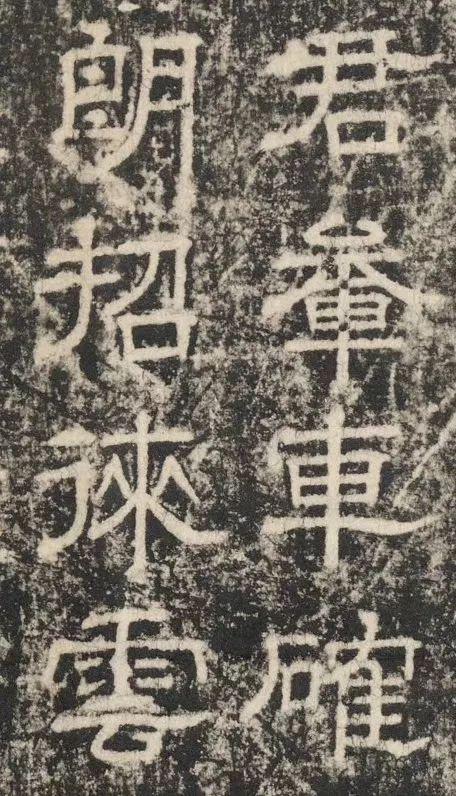 君車確
朗招徠雲